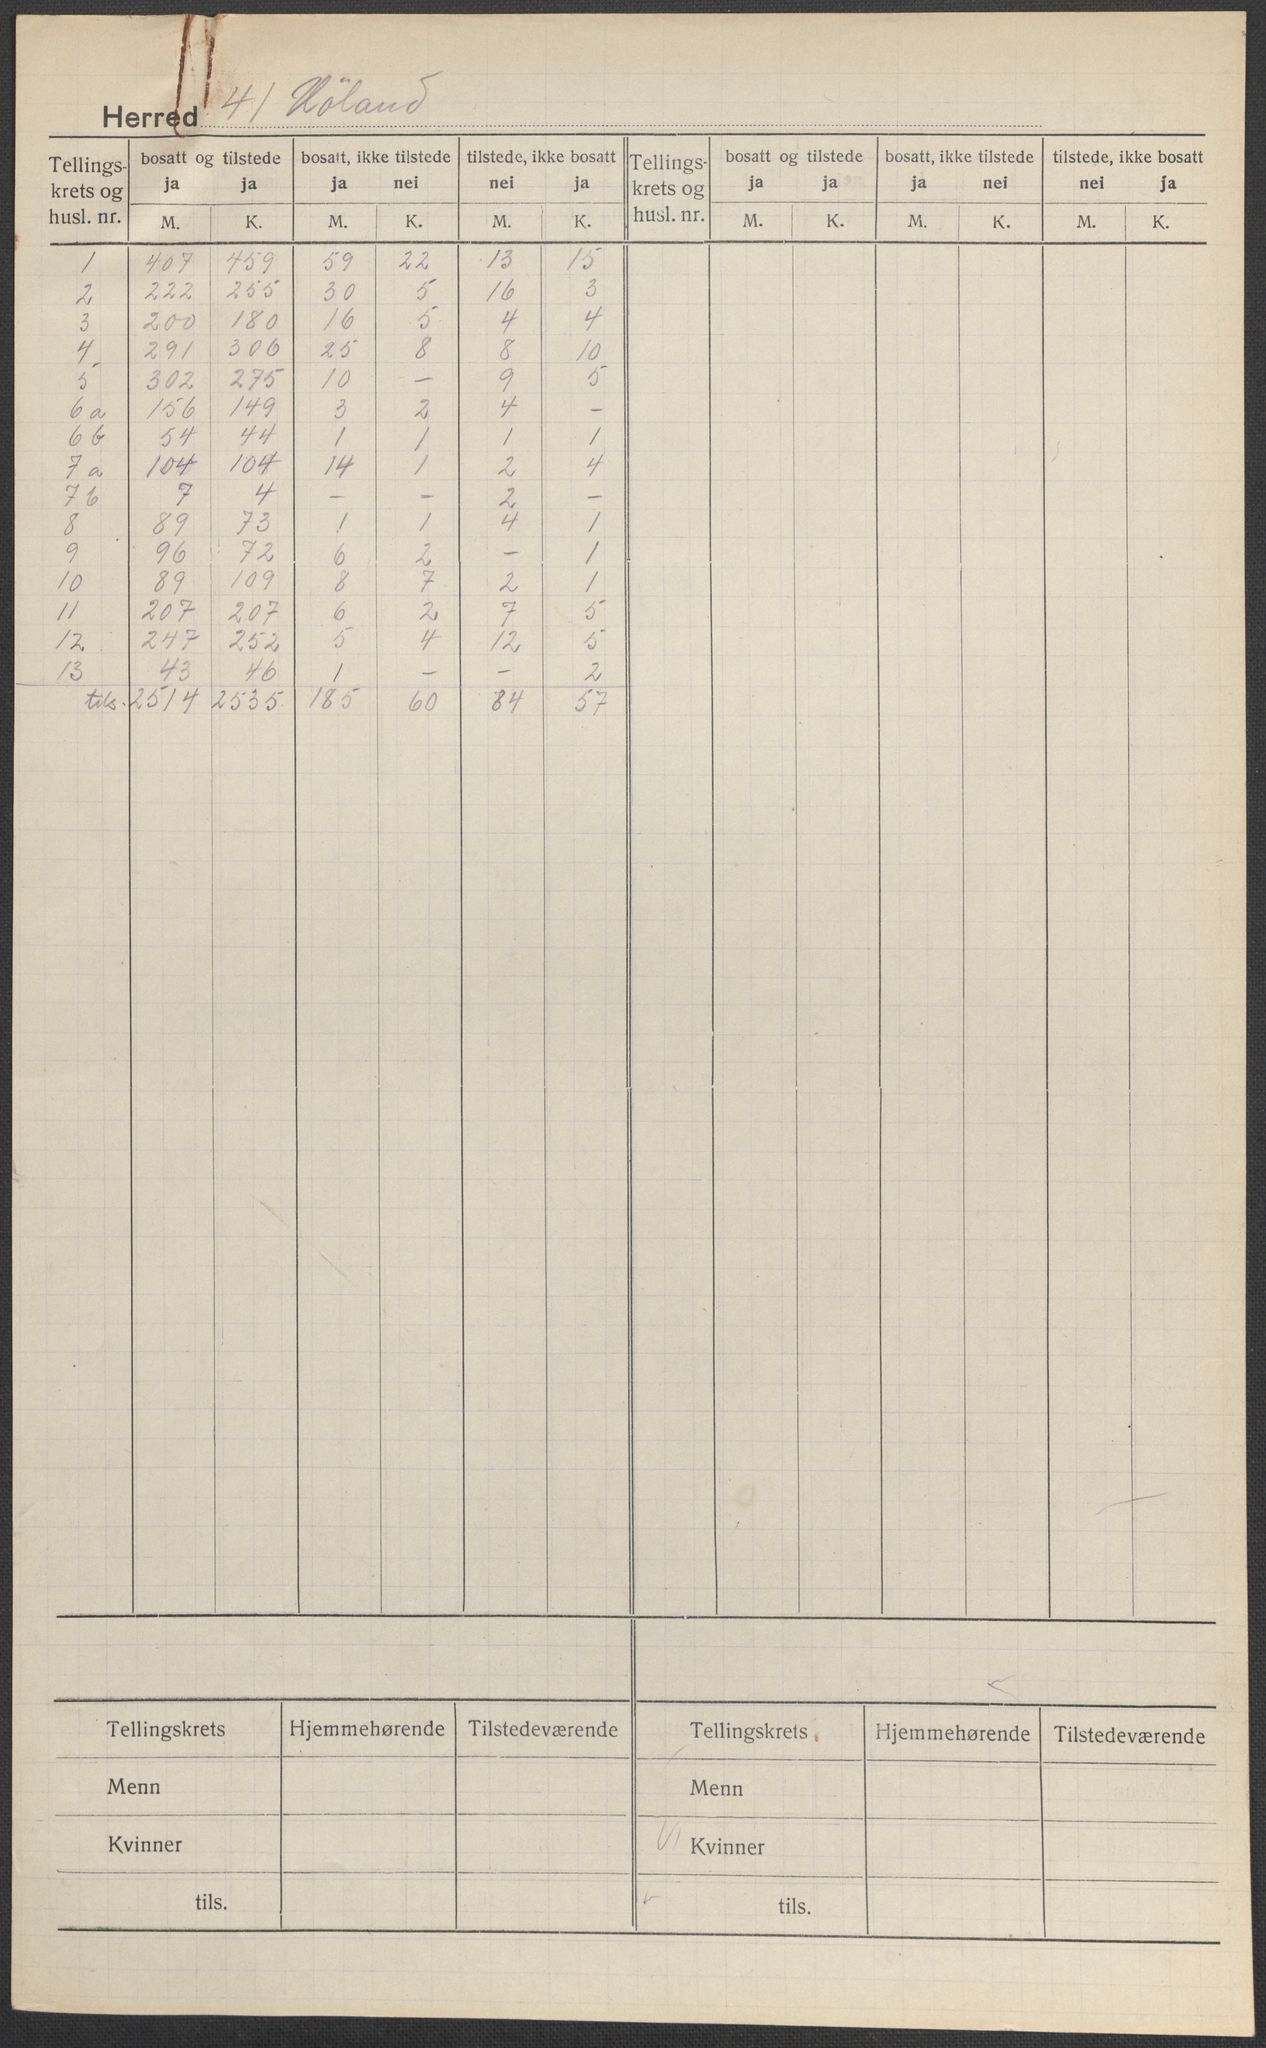 Herred 41 Höland
Tellings- bosatt og tilstede bosatt, ikke tilstede tilstede, ikke bosatt Tellings- bosatt og tilstede bosatt, ikke tilstede tilstede, ikke bosatt
krets og ja ja ja nei nei ja krets og ja ja ja nei nei ja
husl. nr. M. K. M. K. M. K. husl. nr. M. K. M. K. M. K.
1 407 459 59 22 13 15
2 222 255 30 5 16 3
3 200 180 16 5 4 4
4 291 306 25 8 8 10
5 302 275 10 – 9 5
6a 156 149 3 2 4 –
6b 54 44 1 1 1 1
7a 104 104 14 1 2 4
7b 7 4 – – 2 –
8 89 73 1 1 4 1
9 96 72 6 2 – 1
10 89 109 8 7 2 1
11 207 207 6 2 7 5
12 247 252 5 4 12 5
13 43 46 1 – – 2
tils. 2514 2535 185 60 84 57
Tellingskrets Hjemmehørende Tilstedeværende Tellingskrets Hjemmehørende Tilstedeværende
Menn Menn
Kvinner Kvinner
tils. tils.